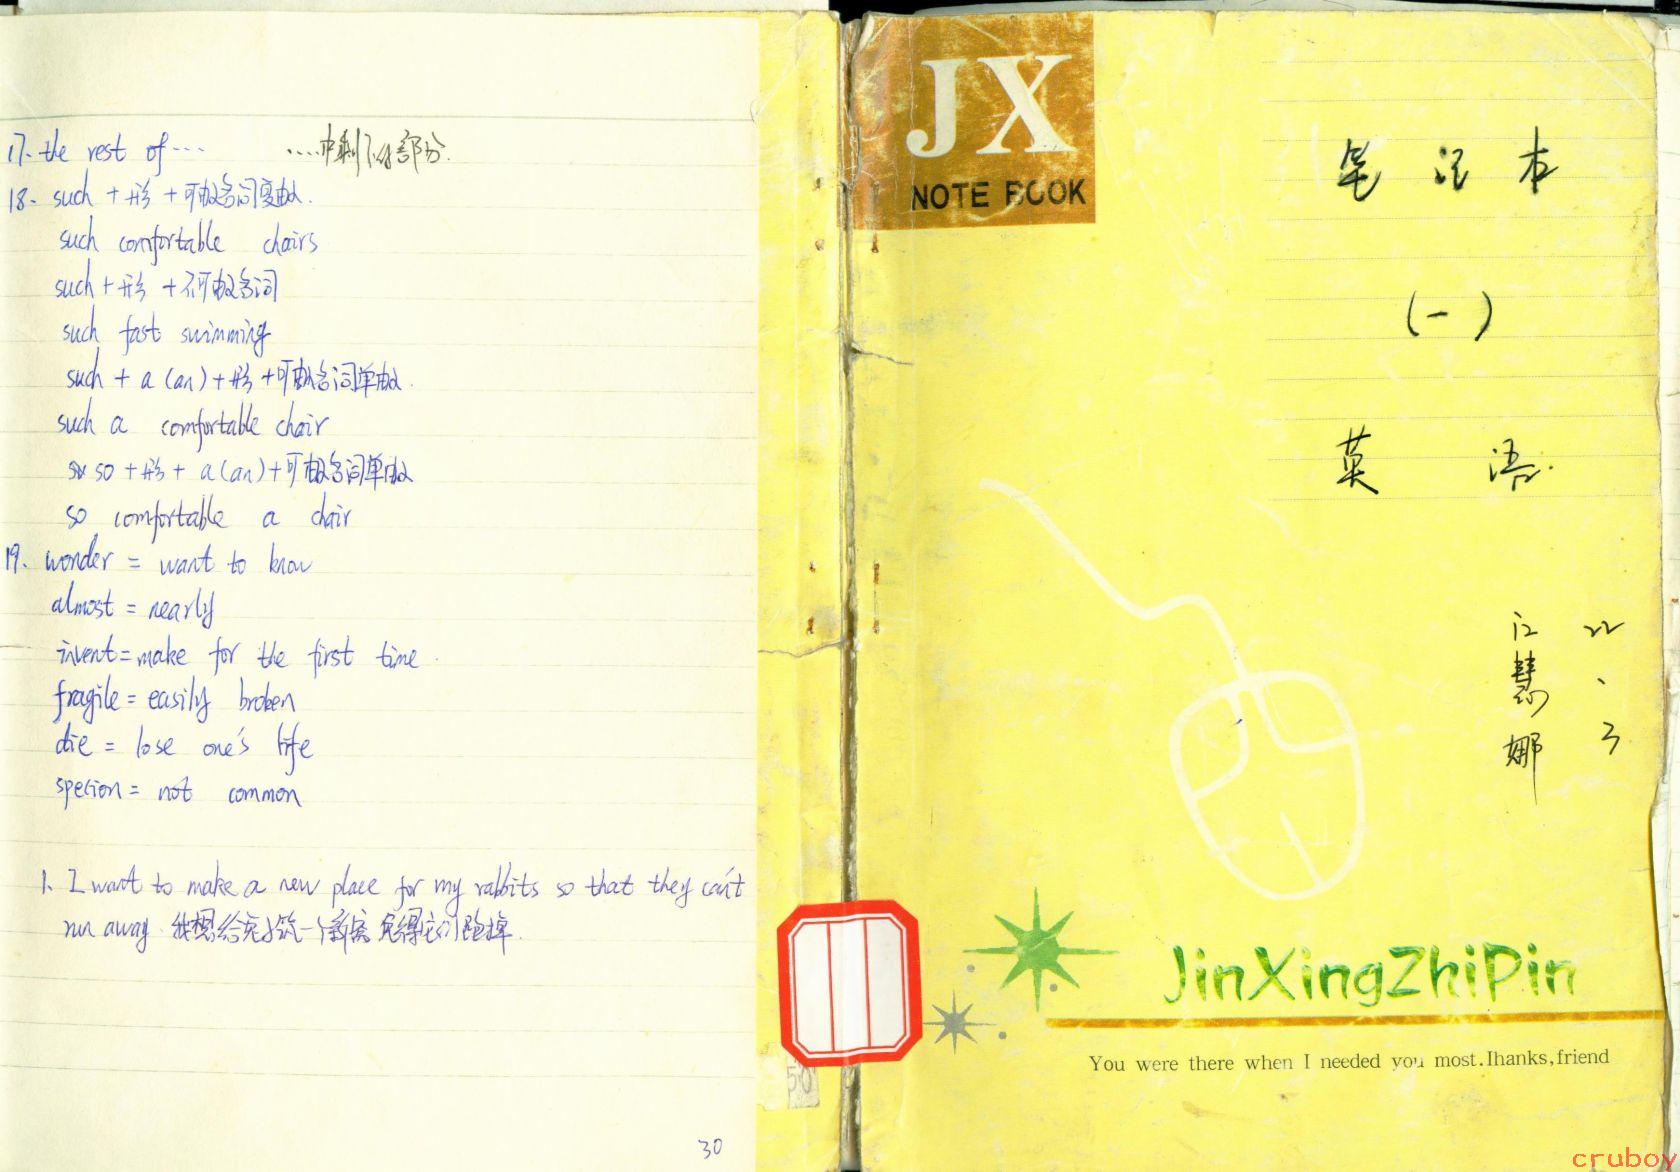 17. the rest of … ……中剩下的部分.
18. such + 形 + 可数名词复数.
such comfortable chairs
such + 形 + 不可数名词
such fast swimming
such + a (an) + 形 + 可数名词单数.
such a comfortable chair
so + 形 + a (an) + 可数名词单数
so comfortable a chair
19. wonder = want to know
almost = nearly
invent = make for the first time.
fragile = easily broken
die = lose one's life
specion = not common
1. I want to make a new place for my rabbits so that they can't
run away. 我想给兔子筑一个新窝 免得它们跑掉.
30
JX
NOTE BOOK
笔记本
(一)
英语.
江慧娜
JinXingZhiPin
You were there when I needed you most.Ihanks,friend
50
cruboy